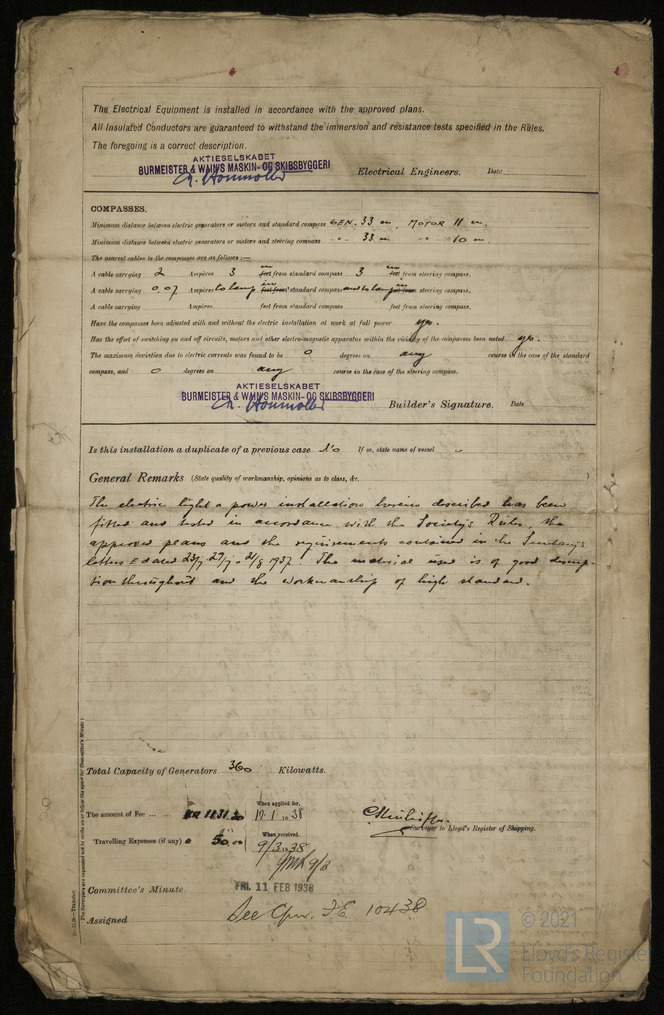 The Electrical Equipment is installed in accordance with the approved plans.
All Insulated Conductors are guaranteed to withstand the immersion and resistance tests specified in the Rules.
The foregoing is a correct description.
AKTIESELSKABET
BURMEISTER & WAIN'S MASKIN- OG SKIBSBYGGERI
Electrical Engineers. Date
COMPASSES.
Minimum distance between electric generators or motors and standard compass GEN. 33 m, MOTOR 11 m.
Minimum distance between electric generators or motors and steering compass " 33 m " 10 m
The nearest cables to the compasses are as follows:—
A cable carrying 2 Amperes 3 m feet from standard compass 3 m feet from steering compass.
A cable carrying 0.07 Amperes to lamp in feet from standard compass and to lamp in feet from steering compass.
A cable carrying Amperes feet from standard compass feet from steering compass.
Have the compasses been adjusted with and without the electric installation at work at full power yes.
Has the effect of switching on and off circuits, motors and other electro-magnetic apparatus within the vicinity of the compasses been noted yes.
The maximum deviation due to electric currents was found to be 0 degrees on any course in the case of the standard
compass, and 0 degrees on any course in the case of the steering compass.
AKTIESELSKABET
BURMEISTER & WAIN'S MASKIN- OG SKIBSBYGGERI
Builder's Signature. Date
Is this installation a duplicate of a previous case No If so, state name of vessel
General Remarks (State quality of workmanship, opinions as to class, &c.
The electric light & power installations herein described has been
fitted and tested in accordance with the Society's Rules, the
approved plans and the requirements contained in the Secretary's
letters E dated 23/7 27/7 - 21/8 1937. The material used is of good descrip-
tion throughout and the workmanship of high standard.
Total Capacity of Generators 360 Kilowatts.
The amount of Fee ... ... KR 1231.20 When applied for, 17.1.1938
Travelling Expenses (if any) 50.00 When received, 9/3 1938
Surveyor to Lloyd's Register of Shipping.
Committee's Minute FRI. 11 FEB 1938
Assigned See Cpn. F.E. 10438
The Surveyors are requested not to write on or below the space for Committee's Minute.
Transfer.
LR
© 2021
Lloyd's Register
Foundation